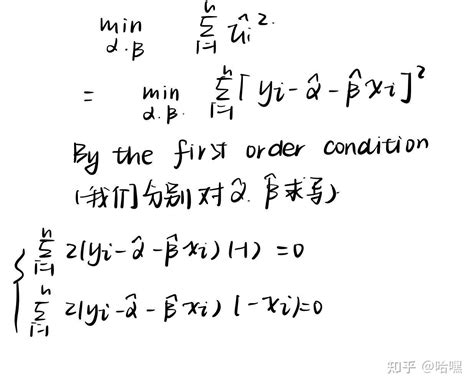 min Σ_{i=1}^{n} û_i².
α.β.
= min Σ_{i=1}^{n} [y_i - α̂ - β̂x_i]²
α.β.
By the first order condition
(我们分别对 α̂. β̂ 求导)
{ Σ_{i=1}^{n} 2(y_i - α̂ - β̂x_i)(-1) = 0
Σ_{i=1}^{n} 2(y_i - α̂ - β̂x_i)(-x_i) = 0
知乎 @哈嘿